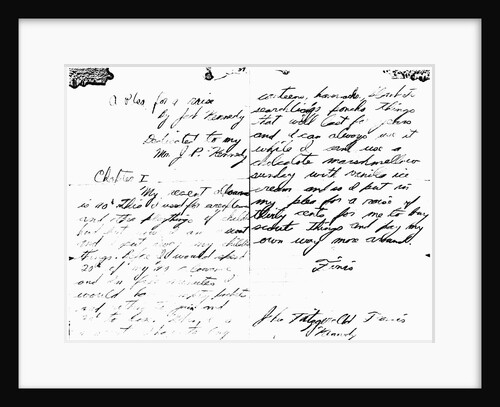 A Plea for a raise
by Jack Kennedy
Dedicated to my
Mr. J. P. Kennedy
Chapter I
My recent allowance
is 40¢. This I used for areoplanes
and other playthings of childhood
but now I am a scout
and I put away my childish
things. Before I would spend
20¢ of my
and in five minutes I
would have empty pockets
and nothing to gain and
20¢ to lose. When I
a scout I have to buy
canteens, haversacks, blankets
searchlights poncho things
that will last for years
and I can always use it
while I cant use a
chocolate marshmellow
sunday with vanilla ice
cream and so I put in
my plea for a raise of
thirty cents for me to buy
scout things and pay my
own way more around.
Finis
John Fitzgerald Francis
Kennedy